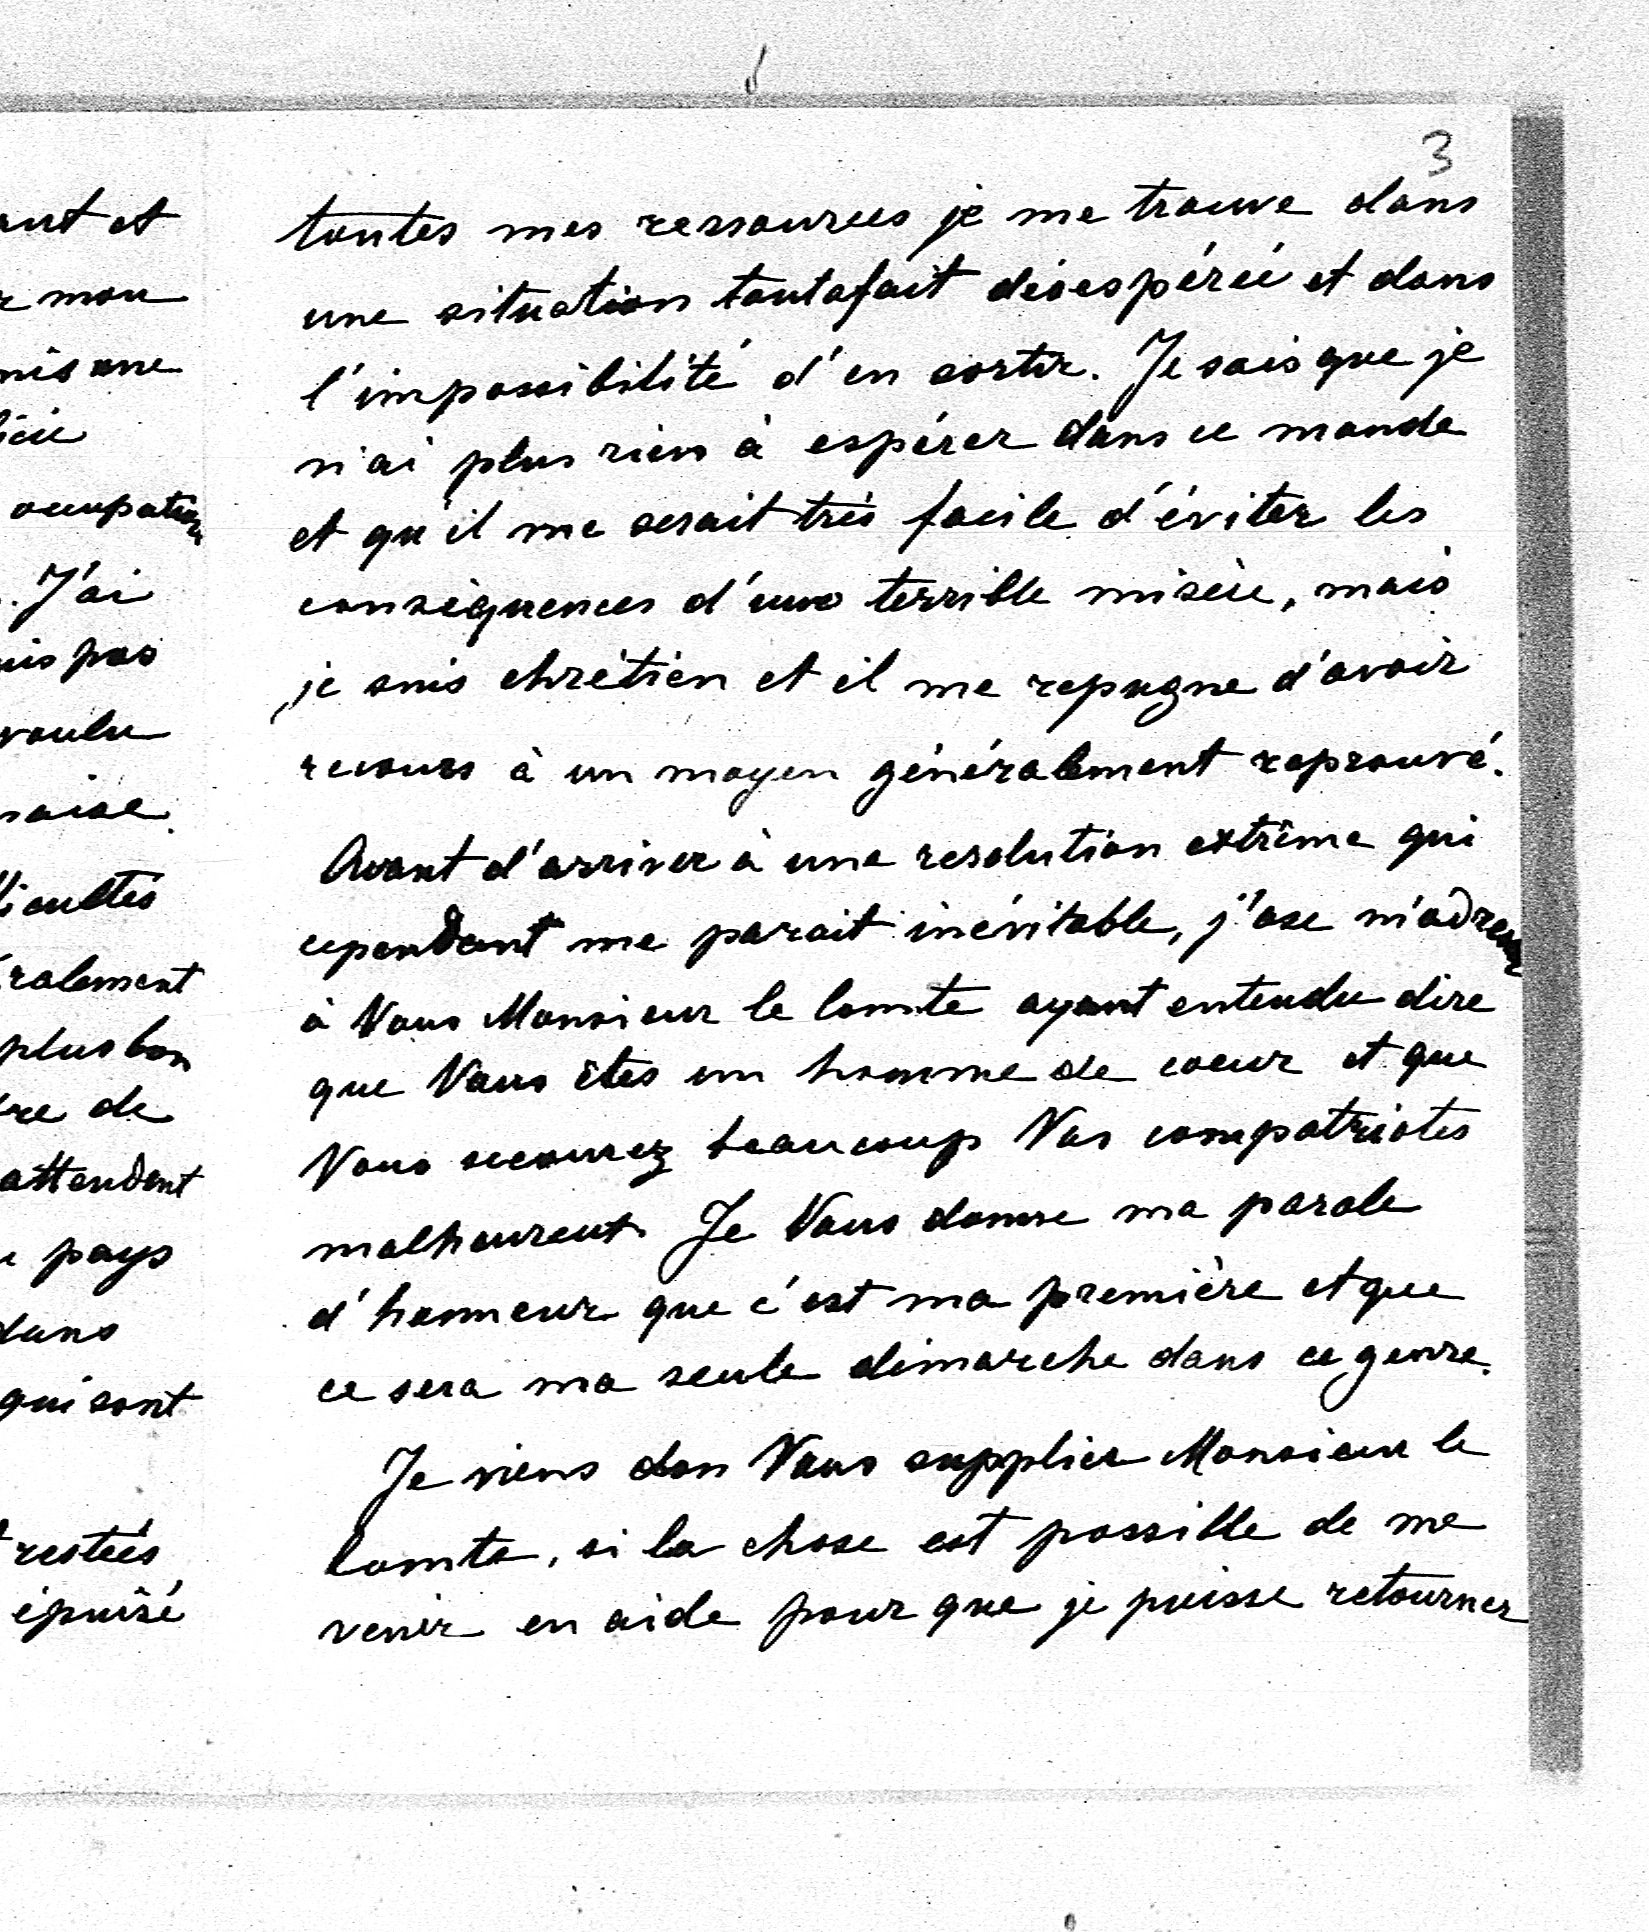 3
toutes mes ressources je me trouve dans
une situation toutafait désespérée et dans
l'impossibilité d'en sortir. Je sais que je
n'ai plus rien à espérer dans ce monde
et qu'il me serait très facile d'éviter les
conséquences d'une terrible misère, mais
je suis chrétien et il me repugne d'avoir
recours à un moyen généralement reprouvé.
Avant d'arriver à une resolution extrême qui
cependant me parait inévitable, j'ose m'adresser
à Vous Monsieur le Comte ayant entendu dire
que Vous êtes un homme de coeur et que
Vous secourez beaucoup Vos compatriotes
malheureux. Je Vous donne ma parole
d'honneur que c'est ma première et que
ce sera ma seule démarche dans ce genre.
Je viens don Vous supplier Monsieur le
Comte, si la chose est possible de me
venir en aide pour que je puisse retourner
et
mon
occupation
. J'ai
pas
voulu
plus bon
de
attendent
pays
dans
qui sont
restées
épuisé